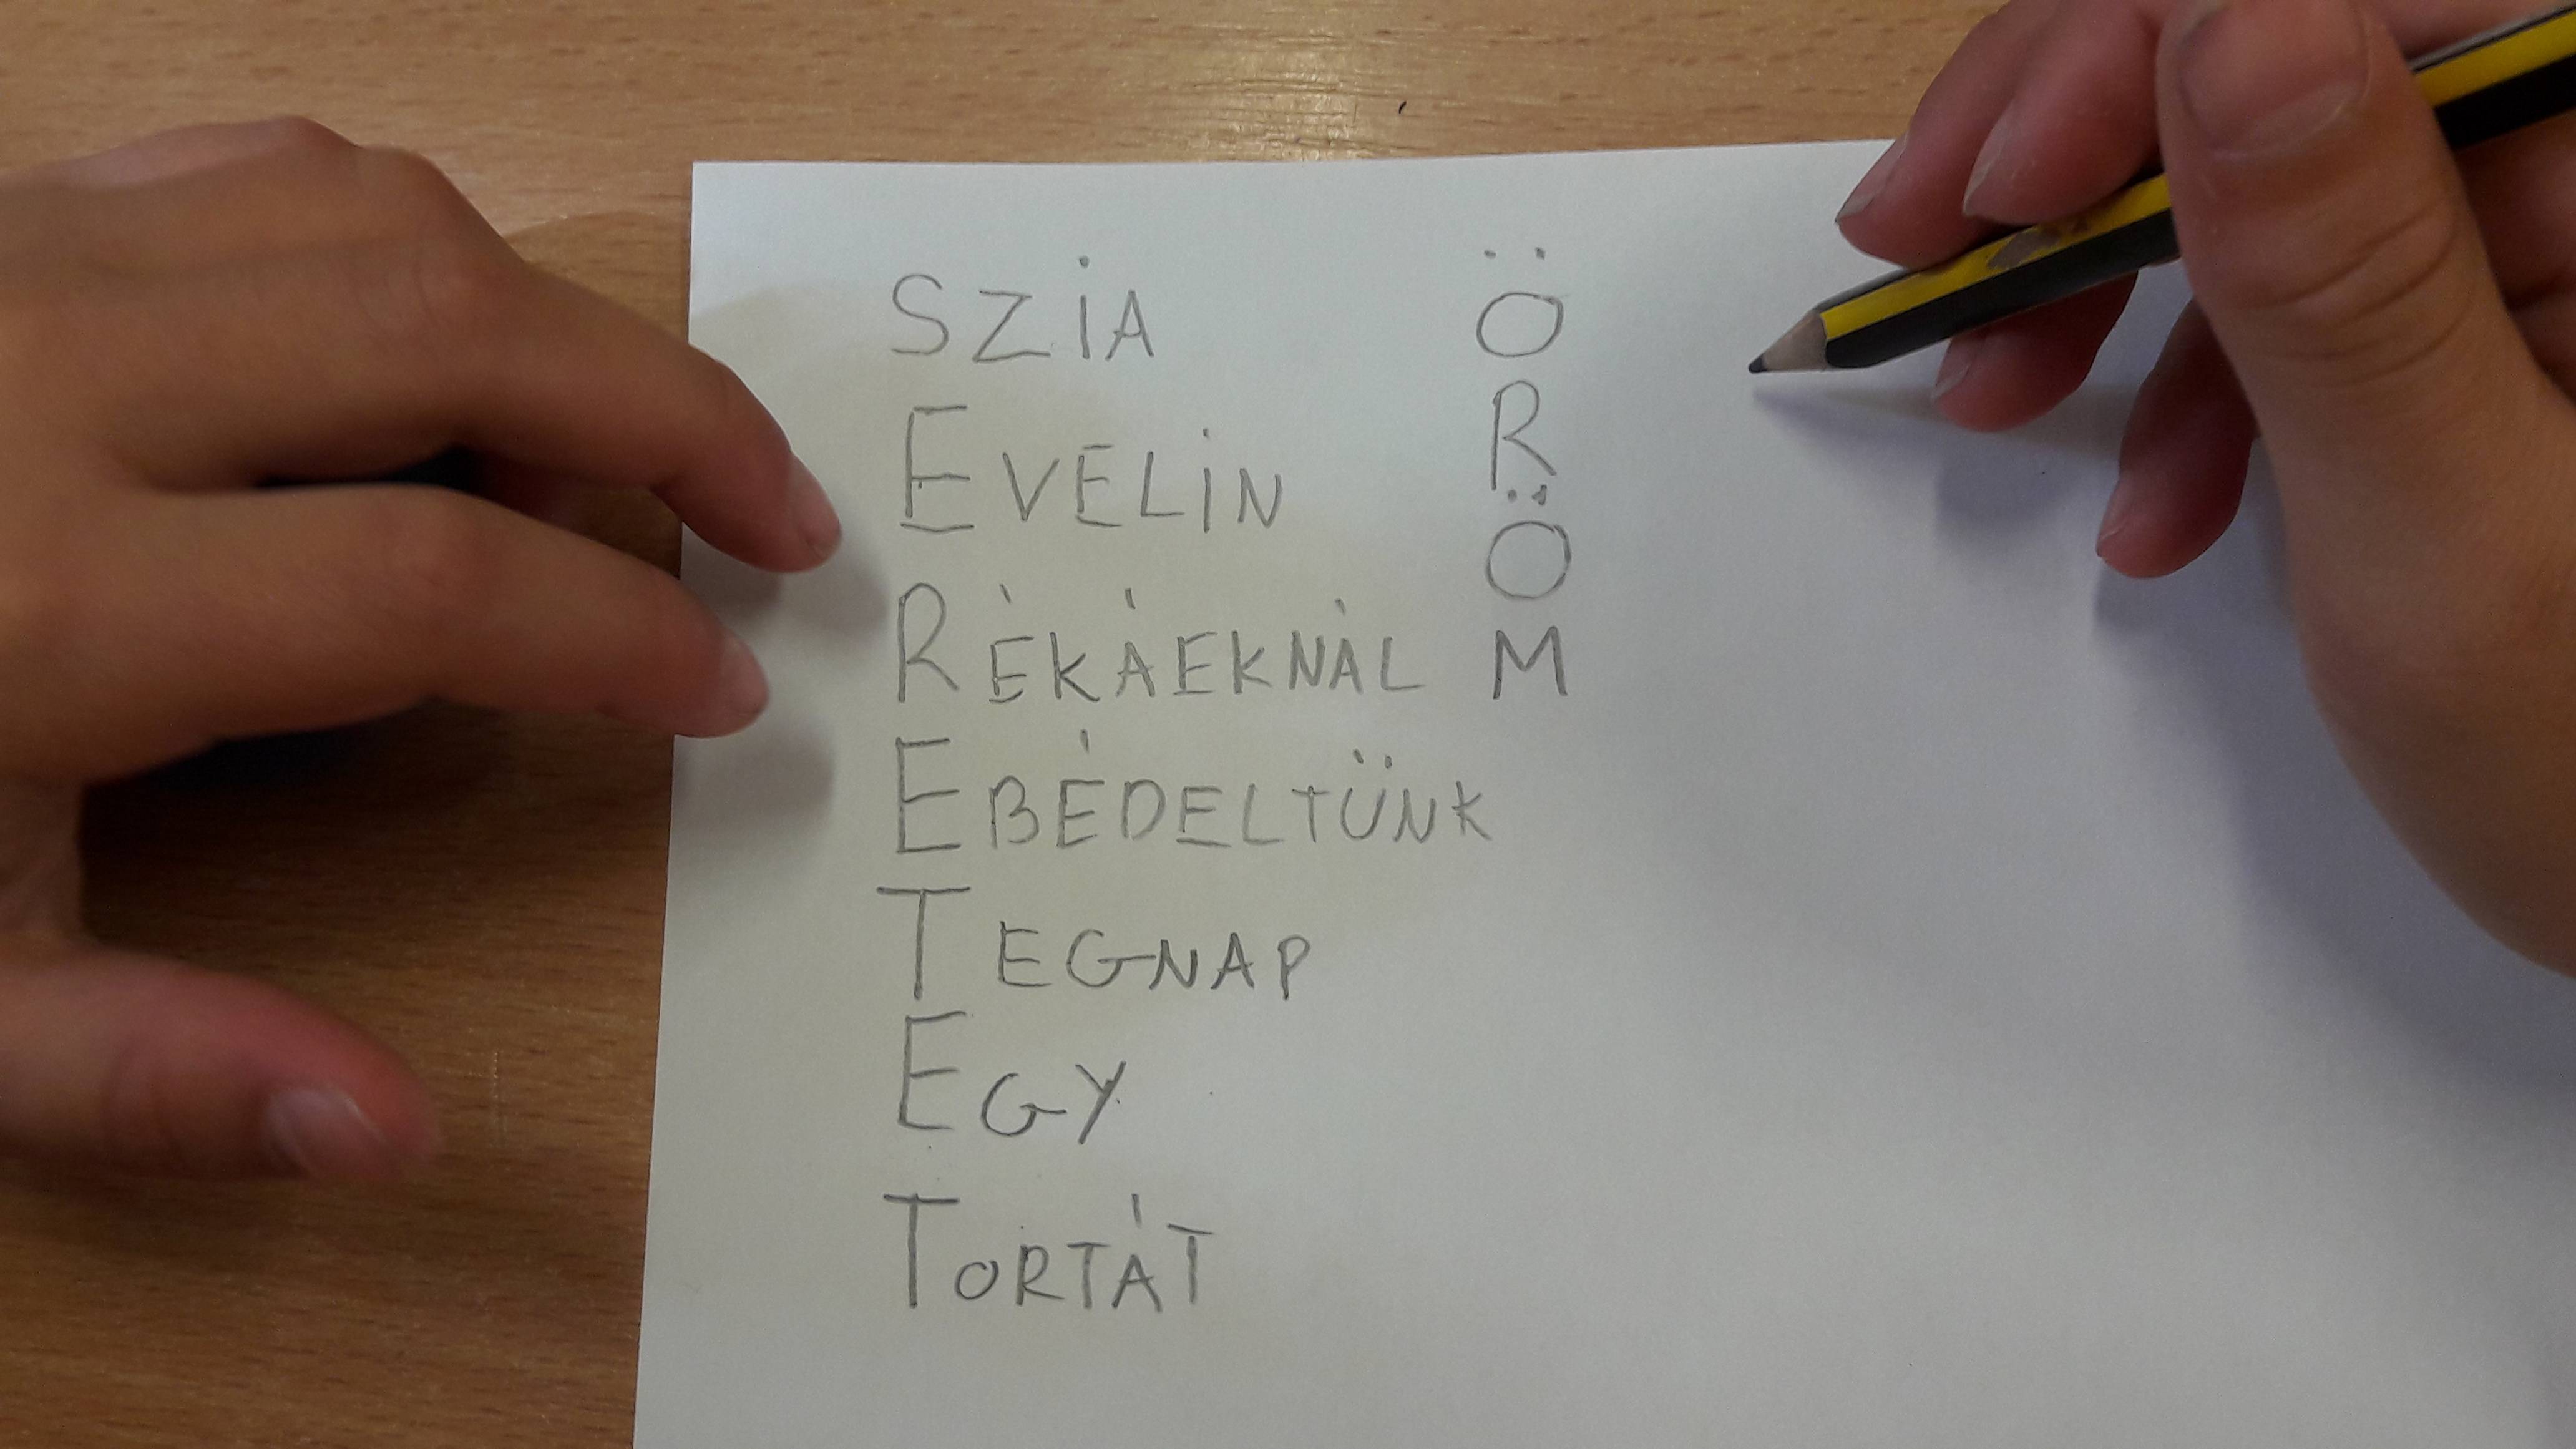 SZIA
EVELIN
RÉKÁEKNÁL
EBÉDELTÜNK
TEGNAP
EGY
TORTÁT
Ö
R
Ö
M